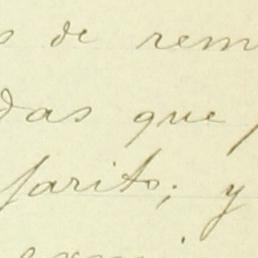 s de rem
das que
farito; y